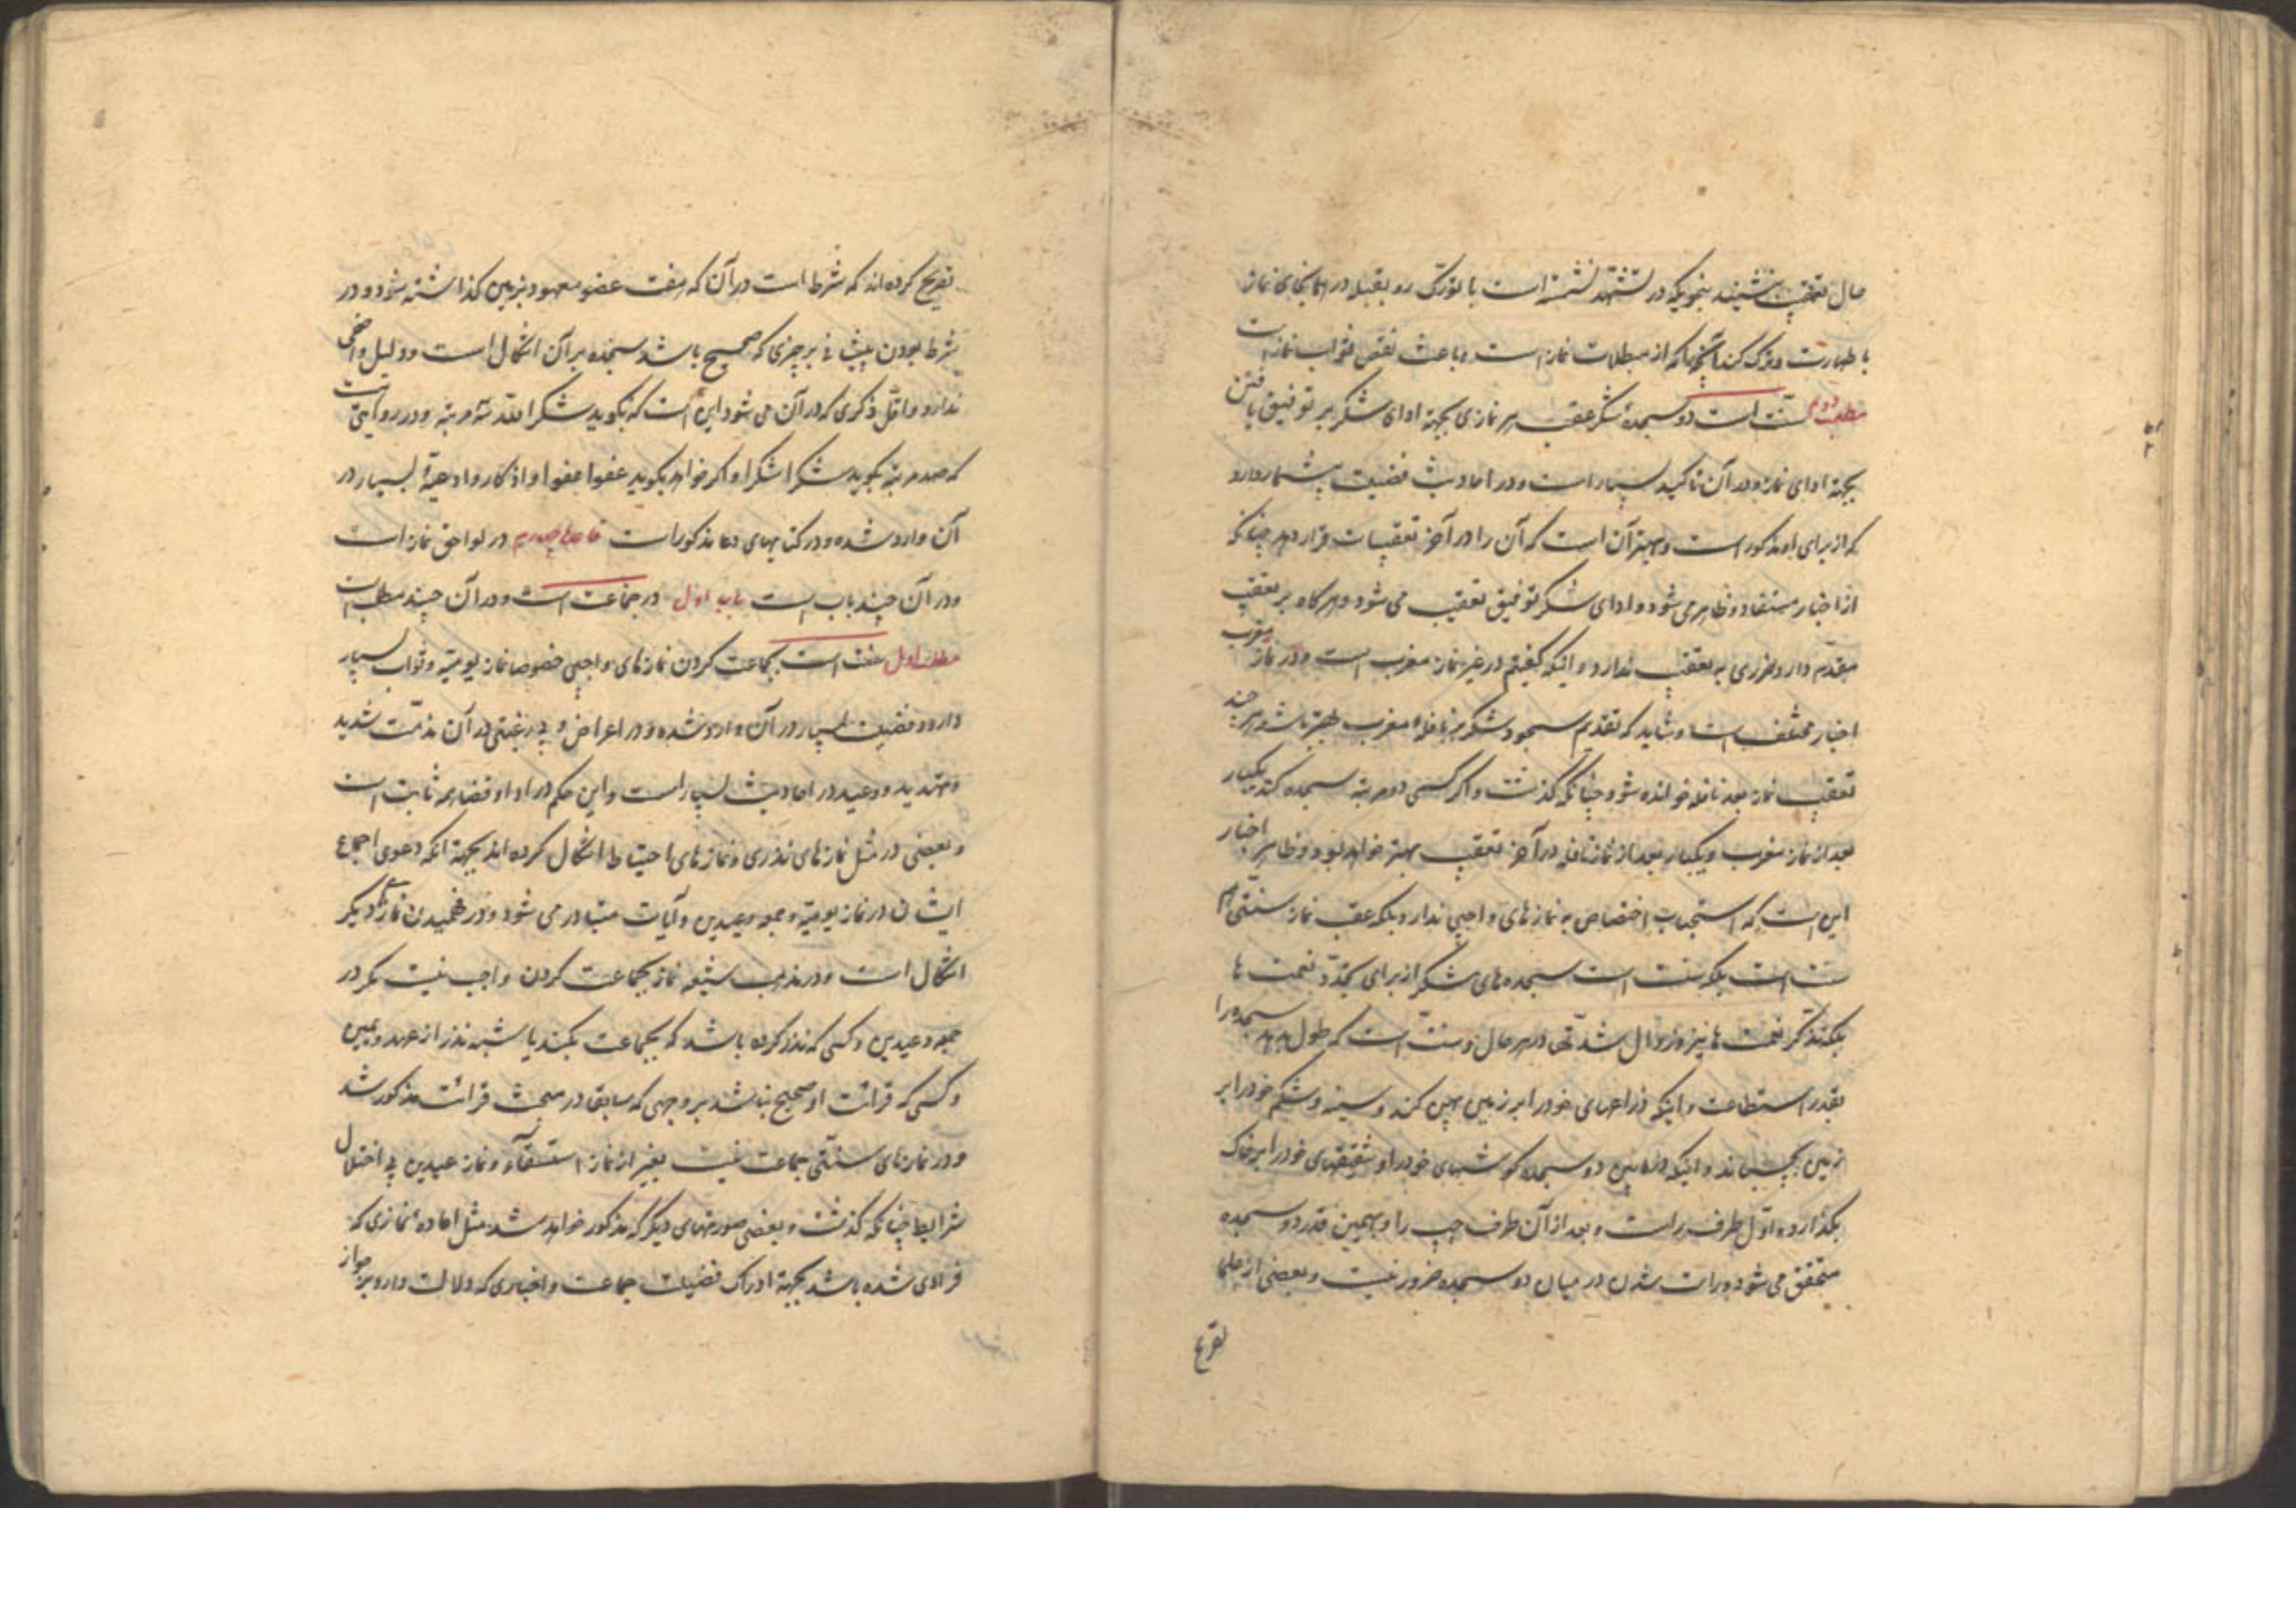 حال تعقیب بنشیند بنحویکه در تشهد نشسته است با تورّک رو بقبله در همانجای نماز
با طهارت و ترک کند آنچها که از مبطلات نماز است و باعث نقص ثواب نماز است
مطلب دوم سنّت است دو سجدهٔ شکر عقب هر نمازی بجهة ادای شکر بر توفیق یافتن
بجهة ادای نماز و در آن تاکید بسیار است و در احادیث فضیلت بیشمار دارد
که از برای او مذکور است و بهتر آن است که آن را در آخر تعقیبات قرار دهد چنانکه
از اخبار مستفاد و ظاهر می شود و ادای شکر توفیق تعقیب می شود و هرگاه بر تعقیب
مقدّم دارد ضرری به تعقیب ندارد و اینکه گفتیم در غیر نماز مغرب است و در نماز مغرب
اخبار مختلف است و شاید که تقدیم سجود شکر بر نافلهٔ مغرب بهتر باشد هر چند
تعقیب نماز بعد نافله خوانده شود چنانکه گذشت و اگر کسی دو مرتبه سجده کند یکبار
بعد از نماز مغرب و یکبار بعد از نماز نافله در آخر تعقیب بهتر خواهد بود و ظاهر اخبار
این است که استحباب اختصاص به نمازهای واجبی ندارد بلکه عقب نماز سنّتی هم
سنت است بلکه سنت است سجده های شکر از برای تجدّد نعمت ها
بلکه تذکّر نعمت ها نیز و زوال شدّتها در هر حال و سنّت است که طول بدهد سجده را
بقدر استطاعت و اینکه ذراعهای خود را بر زمین پهن کند و سینه و شکم خود را بر
زمین بچسباند و اینکه در مابین دو سجده گوشهای خود را و شقیقهای خود را بر خاک
بگذارد اوّل طرف راست و بعد از آن طرف چپ را و بهمین قدر دو سجده
متحقق می شود و راست شدن در میان دو سجده ضرور نیست و بعضی از علما
تصریح
تصریح کرده اند که شرط است در آن که هفت عضو معهود بر زمین گذاشته شود و در
شرط بودن پیشانی بر چیزی که صحیح باشد سجده بر آن اشکال است و دلیل واضحی
ندارد و اقلّ ذکری که در آن می شود این است که بگوید شکرا لله سه مرتبه و در روایتی است
که صد مرتبه بگوید شکرا شکرا و اگر خواهد بگوید عفوا عفوا و اذکار و ادعیهٔ بسیار در
آن وارد شده و در کتابهای دعا مذکور است در لواحق نماز است
و در آن چند باب است باب اول در جماعت است و در آن چند مطلب است
مطلب اول سنت است بجماعت کردن نمازهای واجبی خصوصا نماز یومیّه و ثواب بسیار
دارد و فضیلت بسیار در آن وارد شده و در اعراض و بی رغبتی در آن مذمّت شدید
و تهدید و وعید در احادیث بسیار است و این حکم در ادا و قضا هم ثابت است
و بعضی در مثل نمازهای نذری و نمازهای احتیاط اشکال کرده اند بجهة آنکه دعوی اجماع
ایشان در نماز یومیّه و جمعه و عیدین و آیات متبادر می شود و در فهمیدن نمازهای دیگر
اشکال است و در مذهب شیعه نماز بجماعت کردن واجب نیست مگر در
جمعه و عیدین و کسی که نذر کرده باشد که بجماعت بکند یا شبه نذر از عهد و یمین
و کسی که قرائت او صحیح نباشد بر وجهی که سابقا در مبحث قرائت مذکور شد
و در نمازهای سنّتی جماعت نیست بغیر از نماز استسقاء و نماز عیدین با اختلال
شرایط چنانکه گذشت و بعضی صورتهای دیگر که مذکور خواهد شد مثل اعادهٔ نمازی که
فرادی شده باشد بجهة ادراک فضیلت جماعت و اخباری که دلالت دارد بر جواز